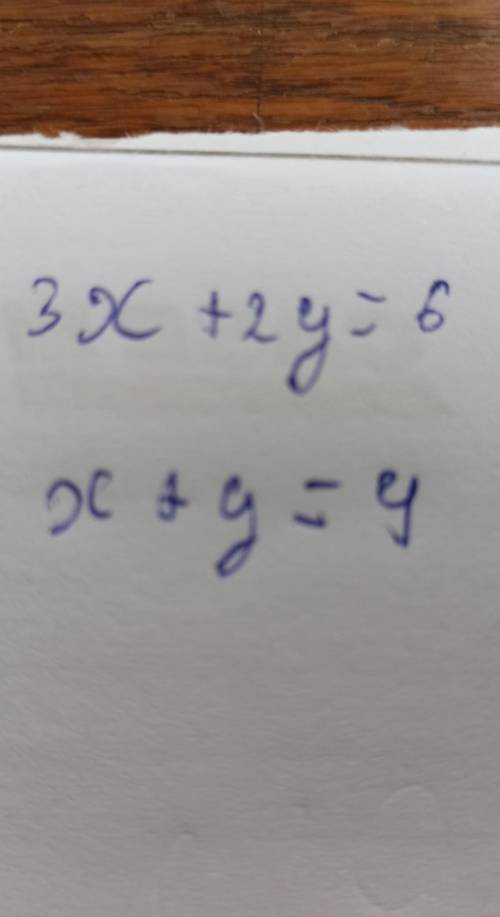 3x + 2y = 6
x + y = 4